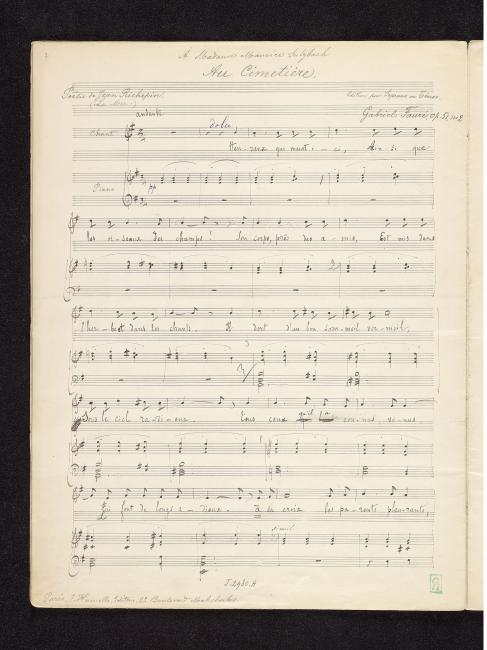 À Madame Maurice Sulzbach
Au Cimetière.
Poésie de Jean Richepin.
(La Mer.)
Edition pour Soprano ou Ténor.
Gabriel Fauré, Op. 51 no 2
andante
dolce
Chant
Heu-reux qui meurt i-ci, Ain-si que
Piano
pp
les oi-seaux des champs! Son corps, près des a-mis, Est mis dans
l'her-be et dans les chants. Il dort d'un bon som-meil ver-meil,
Sous le ciel ra-di-eux. Tous ceux qu'il a con-nus, ve-nus,
Lui font de longs a-dieux. à sa croix les pa-rents pleu-rants,
J. 2980. H
Paris, J. Hamelle, Editeur, 22 Boulevard Malesherbes